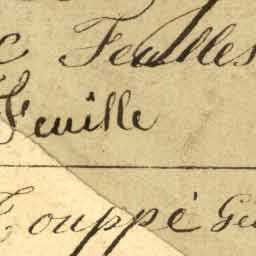 c Feuilles
Feuille
Touppé Gé